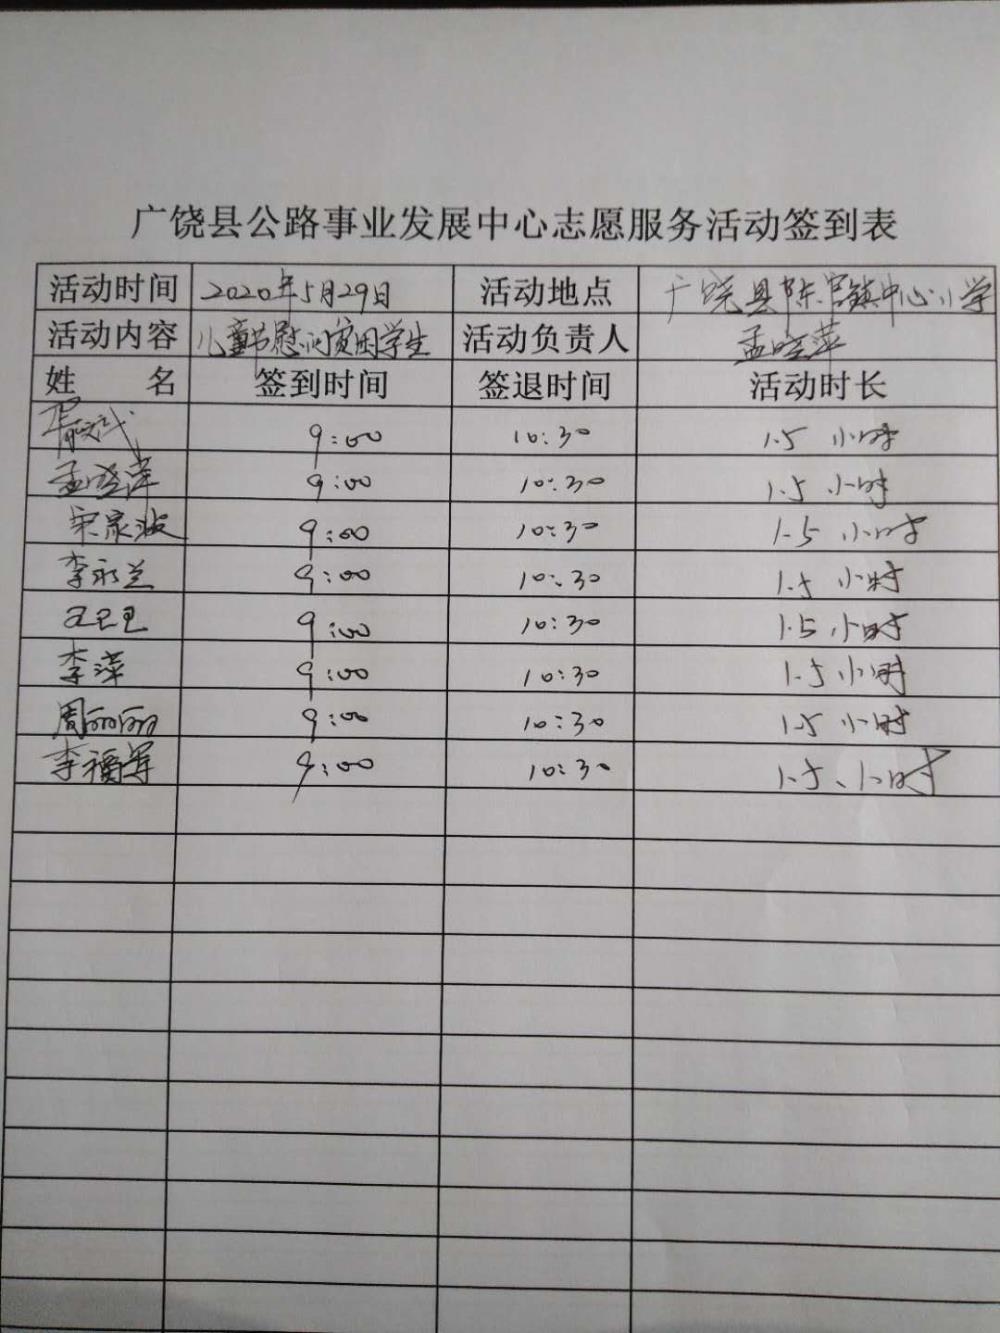 广饶县公路事业发展中心志愿服务活动签到表
活动时间 2020年5月29日 活动地点 广饶县陈官镇中心小学
活动内容 儿童节慰问贫困学生 活动负责人 孟晓萍
姓 名 签到时间 签退时间 活动时长
9:00 10:30 1.5 小时
孟晓萍 9:00 10:30 1.5 小时
宋家波 9:00 10:30 1.5 小时
李永兰 9:00 10:30 1.5 小时
9:00 10:30 1.5 小时
李萍 9:00 10:30 1.5 小时
周丽丽 9:00 10:30 1.5 小时
李福军 9:00 10:30 1.5 小时